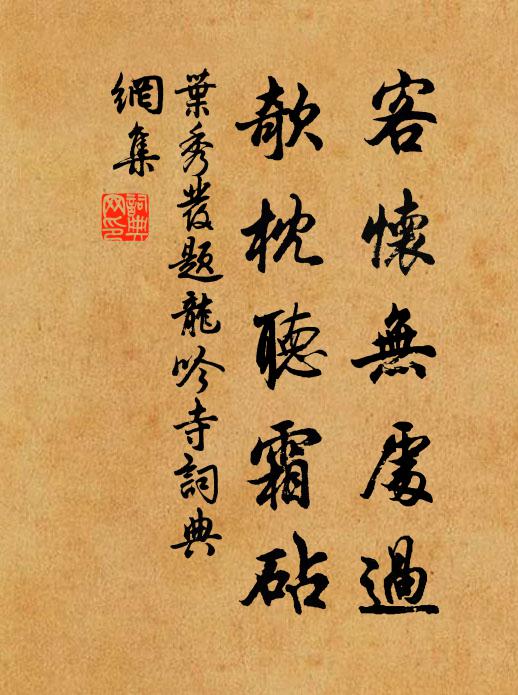 客懷無處過
欹枕聽霜砧
葉秀發題龍吟寺詞典
網集
詞典
网印